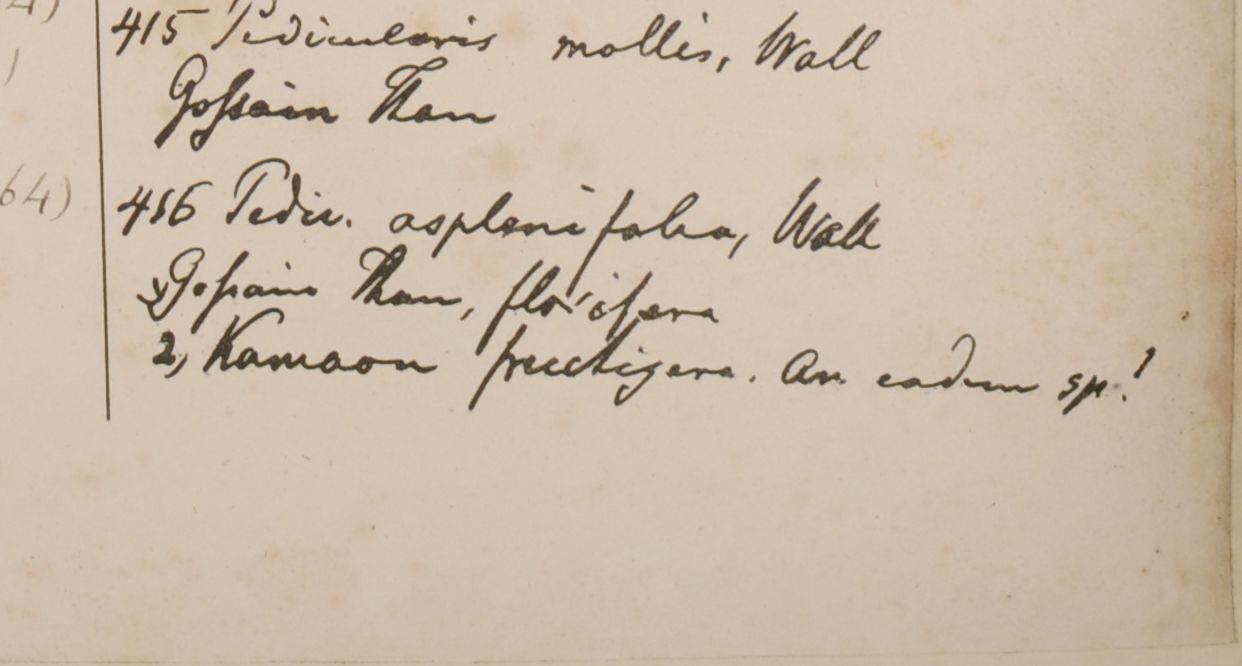 4)
415 Pedicularis mollis, Wall
)
Gossain Than
64)
416 Pedic. asplenifolia, Wall
Gossain Than, florifera
2, Kamaon fructigera. An eadem sp.!